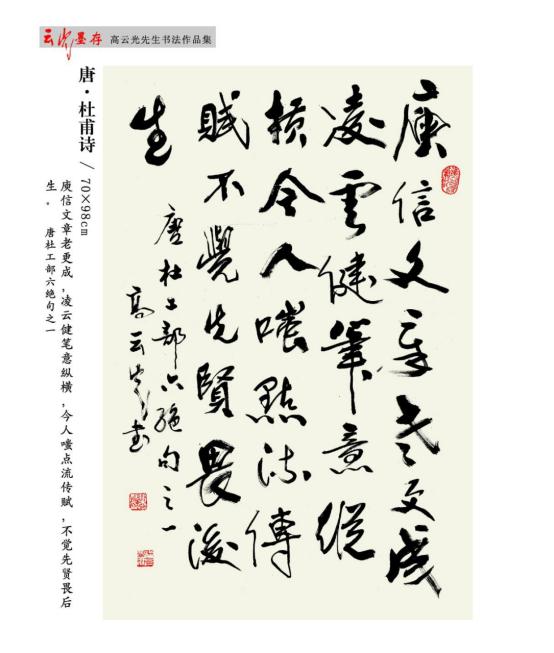 云光墨存 高云光先生书法作品集
唐·杜甫诗 / 70×98cm
庾信文章老更成，凌云健笔意纵横，今人嗤点流传赋，不觉先贤畏后
生。 唐杜工部六绝句之一
庾信文章老更成
凌雲健筆意縱
横今人嗤點流傳
賦不覺先賢畏後
生
唐杜工部六絕句之一
高云光书